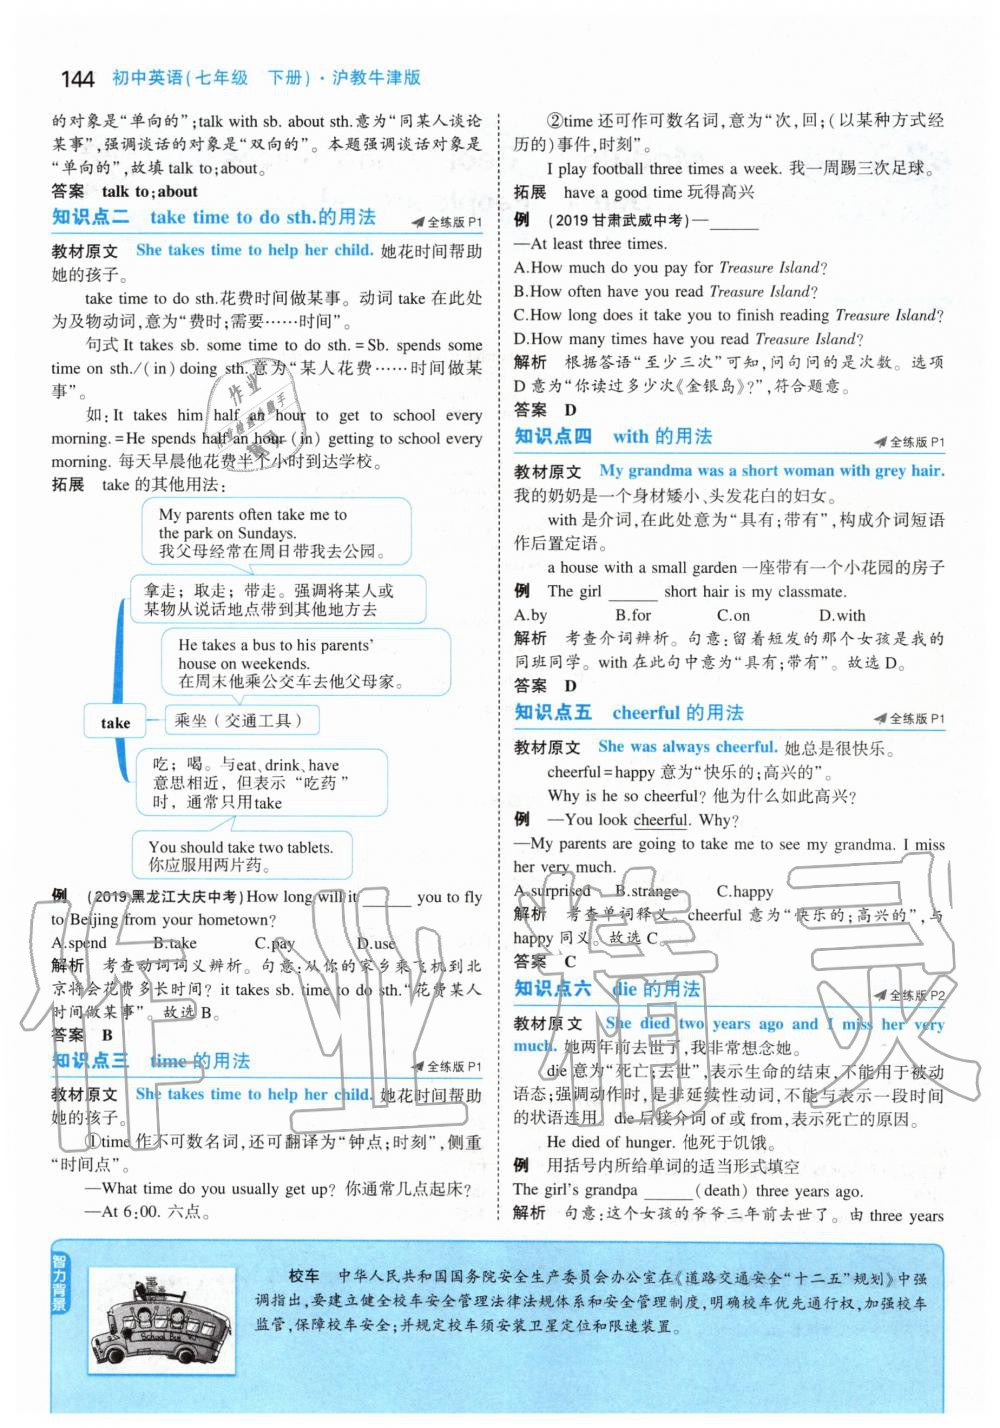 144 初中英语(七年级 下册)·沪教牛津版
的对象是“单向的”;talk with sb. about sth.意为“同某人谈论
某事”,强调谈话的对象是“双向的”。本题强调谈话对象是
“单向的”,故填 talk to;about。
答案 talk to;about
知识点二 take time to do sth.的用法 全练版 P1
教材原文 She takes time to help her child. 她花时间帮助
她的孩子。
take time to do sth.花费时间做某事。动词 take 在此处
为及物动词,意为“费时;需要……时间”。
句式 It takes sb. some time to do sth. = Sb. spends some
time on sth./(in)doing sth.意为“某人花费……时间做某
事”。
如:It takes him half an hour to get to school every
morning. = He spends half an hour (in) getting to school every
morning. 每天早晨他花费半个小时到达学校。
拓展 take 的其他用法:
My parents often take me to
the park on Sundays.
我父母经常在周日带我去公园。
拿走;取走;带走。强调将某人或
某物从说话地点带到其他地方去
He takes a bus to his parents'
house on weekends.
在周末他乘公交车去他父母家。
take
乘坐(交通工具)
吃;喝。与eat、drink、have
意思相近,但表示“吃药”
时,通常只用take
You should take two tablets.
你应服用两片药。
例 (2019黑龙江大庆中考)How long will it ______ you to fly
to Beijing from your hometown?
A.spend B.take C.pay D.use
解析 考查动词词义辨析。句意:从你的家乡乘飞机到北
京将会花费多长时间? it takes sb. time to do sth.“花费某人
时间做某事”。故选 B。
答案 B
知识点三 time 的用法 全练版 P1
教材原文 She takes time to help her child. 她花时间帮助
她的孩子。
①time 作不可数名词,还可翻译为“钟点;时刻”,侧重
“时间点”。
—What time do you usually get up? 你通常几点起床?
—At 6:00. 六点。
②time 还可作可数名词,意为“次,回;(以某种方式经
历的)事件,时刻”。
I play football three times a week. 我一周踢三次足球。
拓展 have a good time 玩得高兴
例 (2019 甘肃武威中考)—______
—At least three times.
A.How much do you pay for Treasure Island?
B.How often have you read Treasure Island?
C.How long does it take you to finish reading Treasure Island?
D.How many times have you read Treasure Island?
解析 根据答语“至少三次”可知,问句问的是次数。选项
D 意为“你读过多少次《金银岛》?”,符合题意。
答案 D
知识点四 with 的用法 全练版 P1
教材原文 My grandma was a short woman with grey hair.
我的奶奶是一个身材矮小、头发花白的妇女。
with 是介词,在此处意为“具有;带有”,构成介词短语
作后置定语。
a house with a small garden 一座带有一个小花园的房子
例 The girl ______ short hair is my classmate.
A.by B.for C.on D.with
解析 考查介词辨析。句意:留着短发的那个女孩是我的
同班同学。with 在此句中意为“具有;带有”。故选 D。
答案 D
知识点五 cheerful 的用法 全练版 P1
教材原文 She was always cheerful. 她总是很快乐。
cheerful = happy 意为“快乐的;高兴的”。
Why is he so cheerful? 他为什么如此高兴?
例 —You look cheerful. Why?
—My parents are going to take me to see my grandma. I miss
her very much.
A.surprised B.strange C.happy
解析 考查单词释义。cheerful 意为“快乐的;高兴的”,与
happy 同义。故选 C。
答案 C
知识点六 die 的用法 全练版 P2
教材原文 She died two years ago and I miss her very
much. 她两年前去世了,我非常想念她。
die 意为“死亡;去世”,表示生命的结束,不能用于被动
语态;强调动作时,是非延续性动词,不能与表示一段时间
的状语连用。die 后接介词 of 或 from,表示死亡的原因。
He died of hunger. 他死于饥饿。
例 用括号内所给单词的适当形式填空
The girl's grandpa ______ (death) three years ago.
解析 句意:这个女孩的爷爷三年前去世了。由 three years
智力背景
School Bus
校车 中华人民共和国国务院安全生产委员会办公室在《道路交通安全“十二五”规划》中强
调指出,要建立健全校车安全管理法律法规体系和安全管理制度,明确校车优先通行权,加强校车
监管,保障校车安全;并规定校车须安装卫星定位和限速装置。
作业精灵